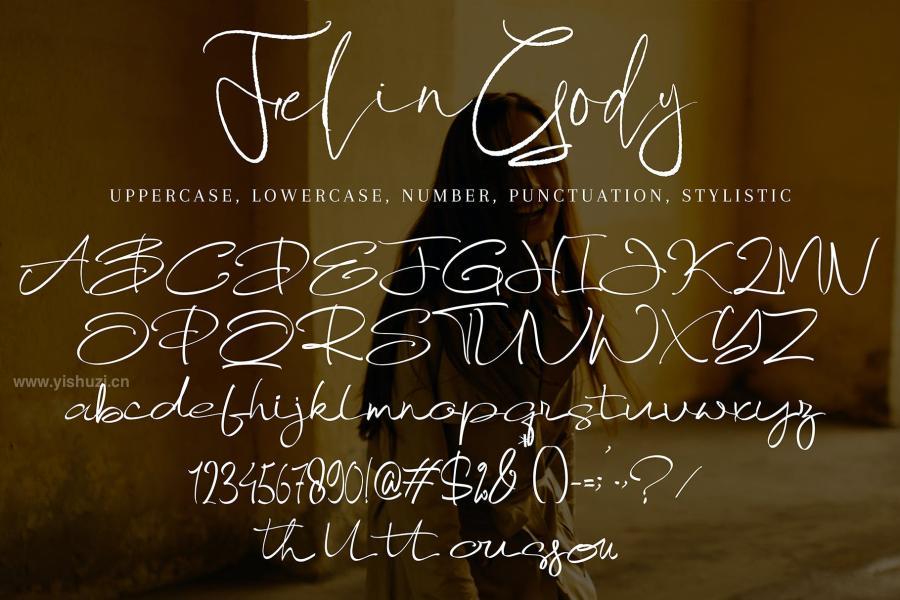 Felin Gody
UPPERCASE, LOWERCASE, NUMBER, PUNCTUATION, STYLISTIC
ABCDEFGHIJKLMN
OPQRSTUVWXYZ
www.yishuzi.cn
abcdefghijklmnopqrstuvwxyz
1234567890!@#$%&*()-=;'.,?/
th ll tt ou ss ou